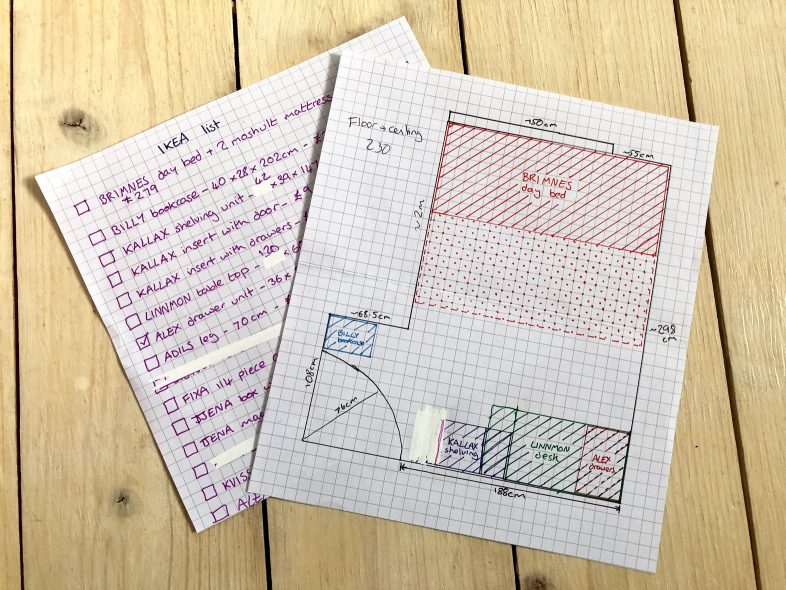 IKEA list
BRIMNES day bed + 2 moshult mattress
£279
BILLY bookcase - 40 x 28 x 202cm -
KALLAX shelving unit - 42 x 39 x 147
KALLAX insert with door - £9
KALLAX insert with drawers -
LINNMON table top - 120
ALEX drawer unit - 36 x
ADILS leg - 70cm -
FIXA 114 piece
TJENA box
TJENA
KVISS
Floor → ceiling
230
150cm
~55cm
BRIMNES
day bed
~2m
~68.5cm
BILLY
bookcase
~298
cm
108cm
76cm
KALLAX
shelving
LINNMON
desk
ALEX
drawers
188cm